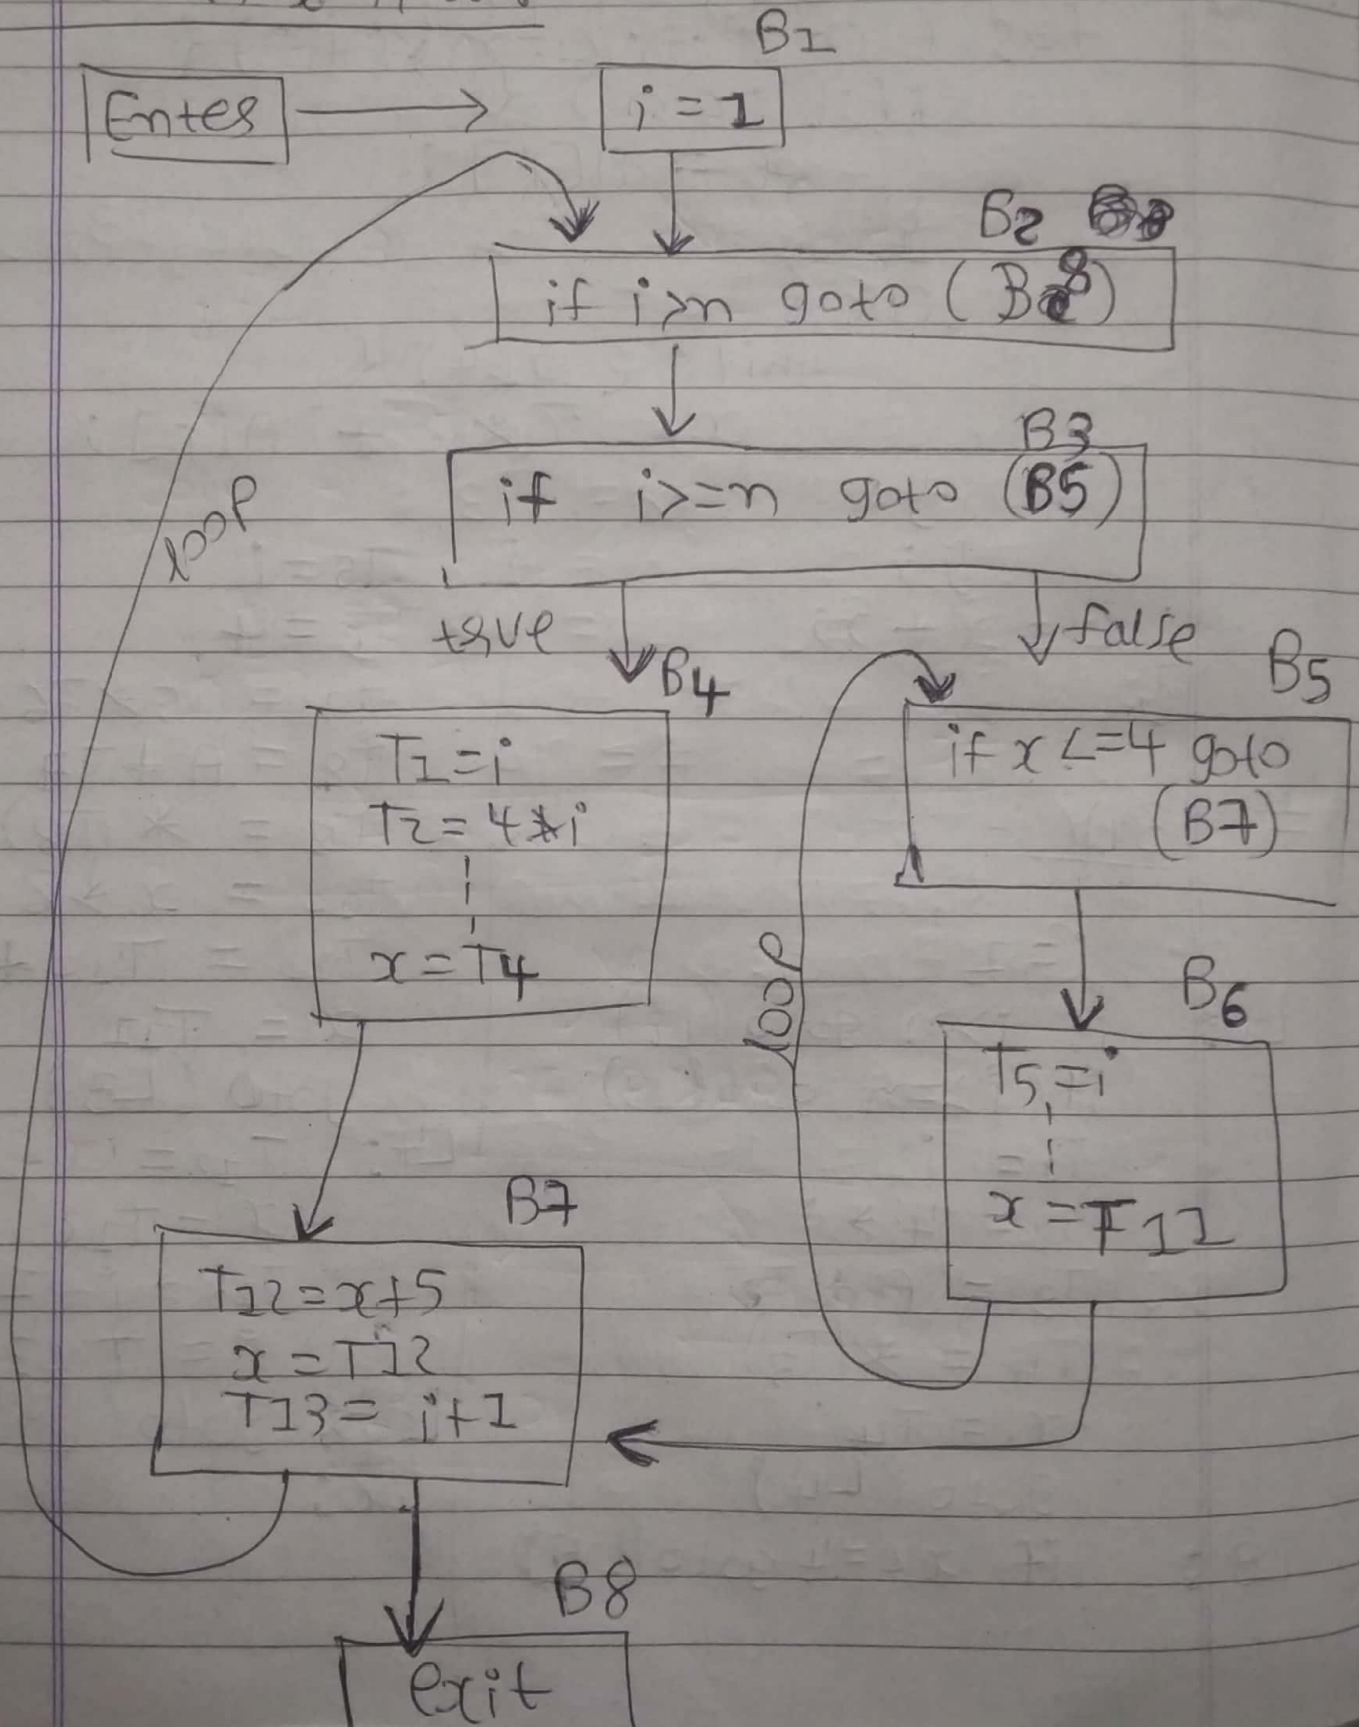 B1
Enter
i = 1
B2
if i>n goto (B8)
B3
if i>=n goto (B5)
loop
true
false
B4
B5
T1=i
T2=4*i
x=T4
if x<=4 goto
(B7)
loop
B6
T5=i
=
x=T11
B7
T12=x+5
x=T12
T13= i+1
B8
exit